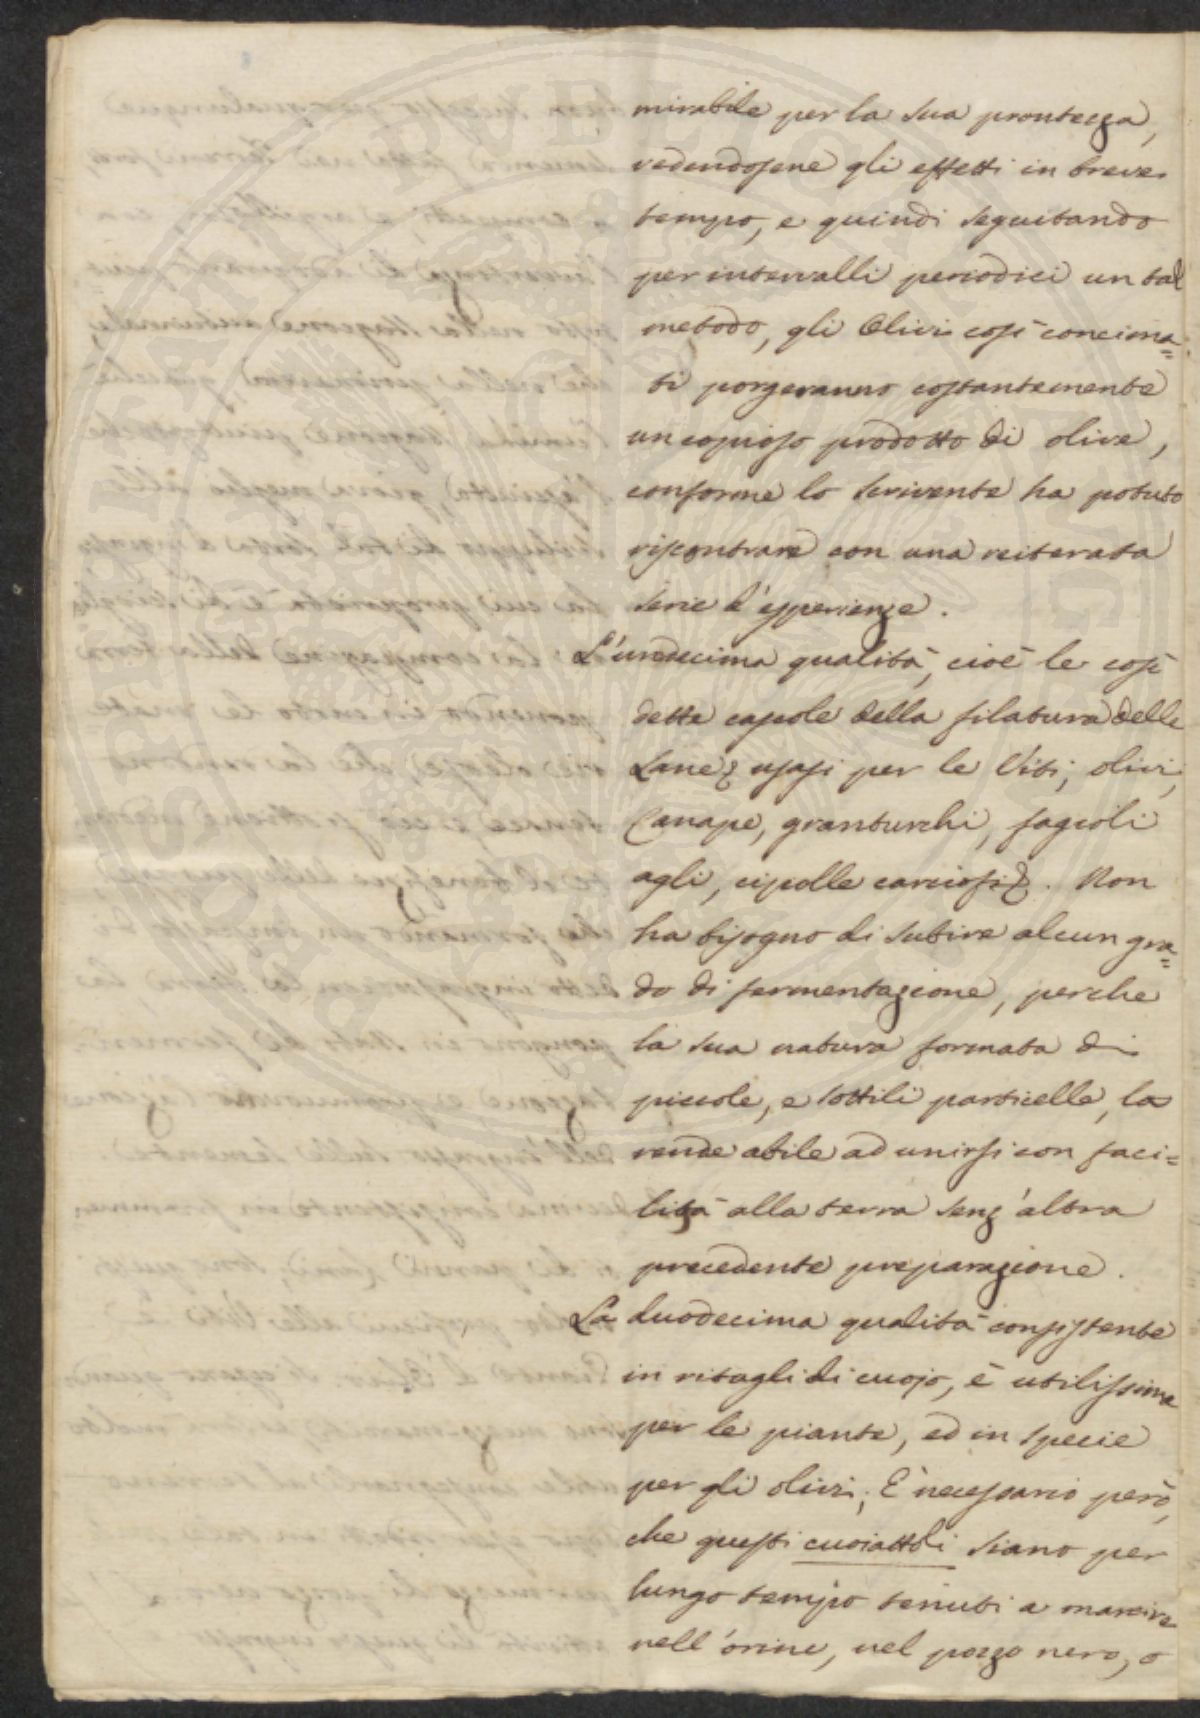 mirabile per la sua prontezza,
vedendosene gli effetti in breve
tempo, e quindi seguitando
per intervalli periodici un tal
metodo, gli Olivi così concima=
ti porgeranno costantemente
un copioso prodotto di olive,
conforme lo scrivente ha potuto
riscontrare con una reiterata
serie d'esperienze.
L'undecima qualità, cioè le così
dette capeole della filatura delle
Lane, usasi per le Viti, olivi,
Canape, granturchi, fagioli
agli, cipolle carciofi &. Non
ha bisogno di subire alcun gra=
do di fermentazione, perche
la sua natura formata di
piccole, e sottili particelle, la
rende abile ad unirsi con faci=
lità alla terra senz'altra
precedente preparazione.
La duodecima qualità consistente
in ritagli di cuojo, è utilissima
per le piante, ed in specie
per gli olivi; È necessario però,
che questi cuoiattoli siano per
lungo tempo tenuti a marcire
nell'orine, nel pozzo nero, o